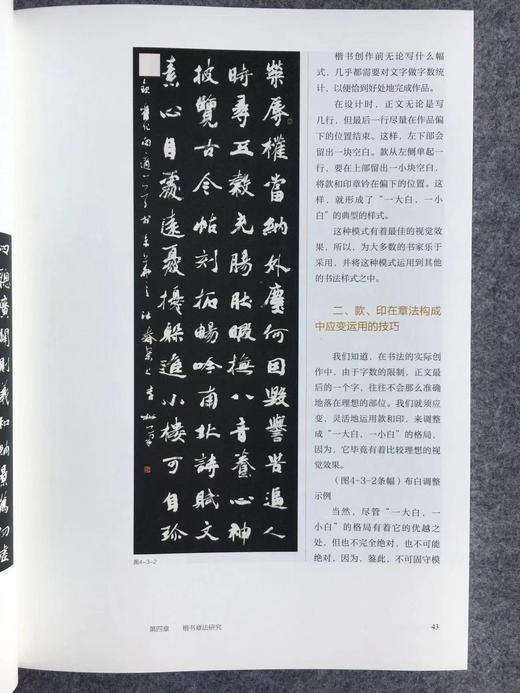 榮辱權當納外塵何回毀譽苦逼人
時尋五穀充腸肚暇撫八音養心神
披覽古今帖刻拓暢吟南北詩賦文
素心自處遠憂擾躲進小樓可自珍
图4-3-2
楷书创作前无论写什么幅
式，几乎都需要对文字做字数统
计，以便恰到好处地完成作品。
在设计时，正文无论是写
几行，但最后一行尽量在作品偏
下的位置结束。这样，左下部会
留出一块空白。款从左侧单起一
行，要在上部留出一小块空白，
将款和印章钤在偏下的位置。这
样，就形成了“一大白、一小
白”的典型的样式。
这种模式有着最佳的视觉效
果，所以，为大多数的书家乐于
采用，并将这种模式运用到其他
的书法样式之中。
二、款、印在章法构成
中应变运用的技巧
我们知道，在书法的实际创
作中，由于字数的限制，正文最
后的一个字，往往不会那么准确
地落在理想的部位。我们就须应
变，灵活地运用款和印，来调整
成“一大白、一小白”的格局，
因为，它毕竟有着比较理想的视
觉效果。
（图4-3-2条幅）布白调整
示例
当然，尽管“一大白、一
小白”的格局有着它的优越之
处，但也不完全绝对，也不可能
绝对，因为，鉴此，不可固守模
第四章 楷书章法研究
43